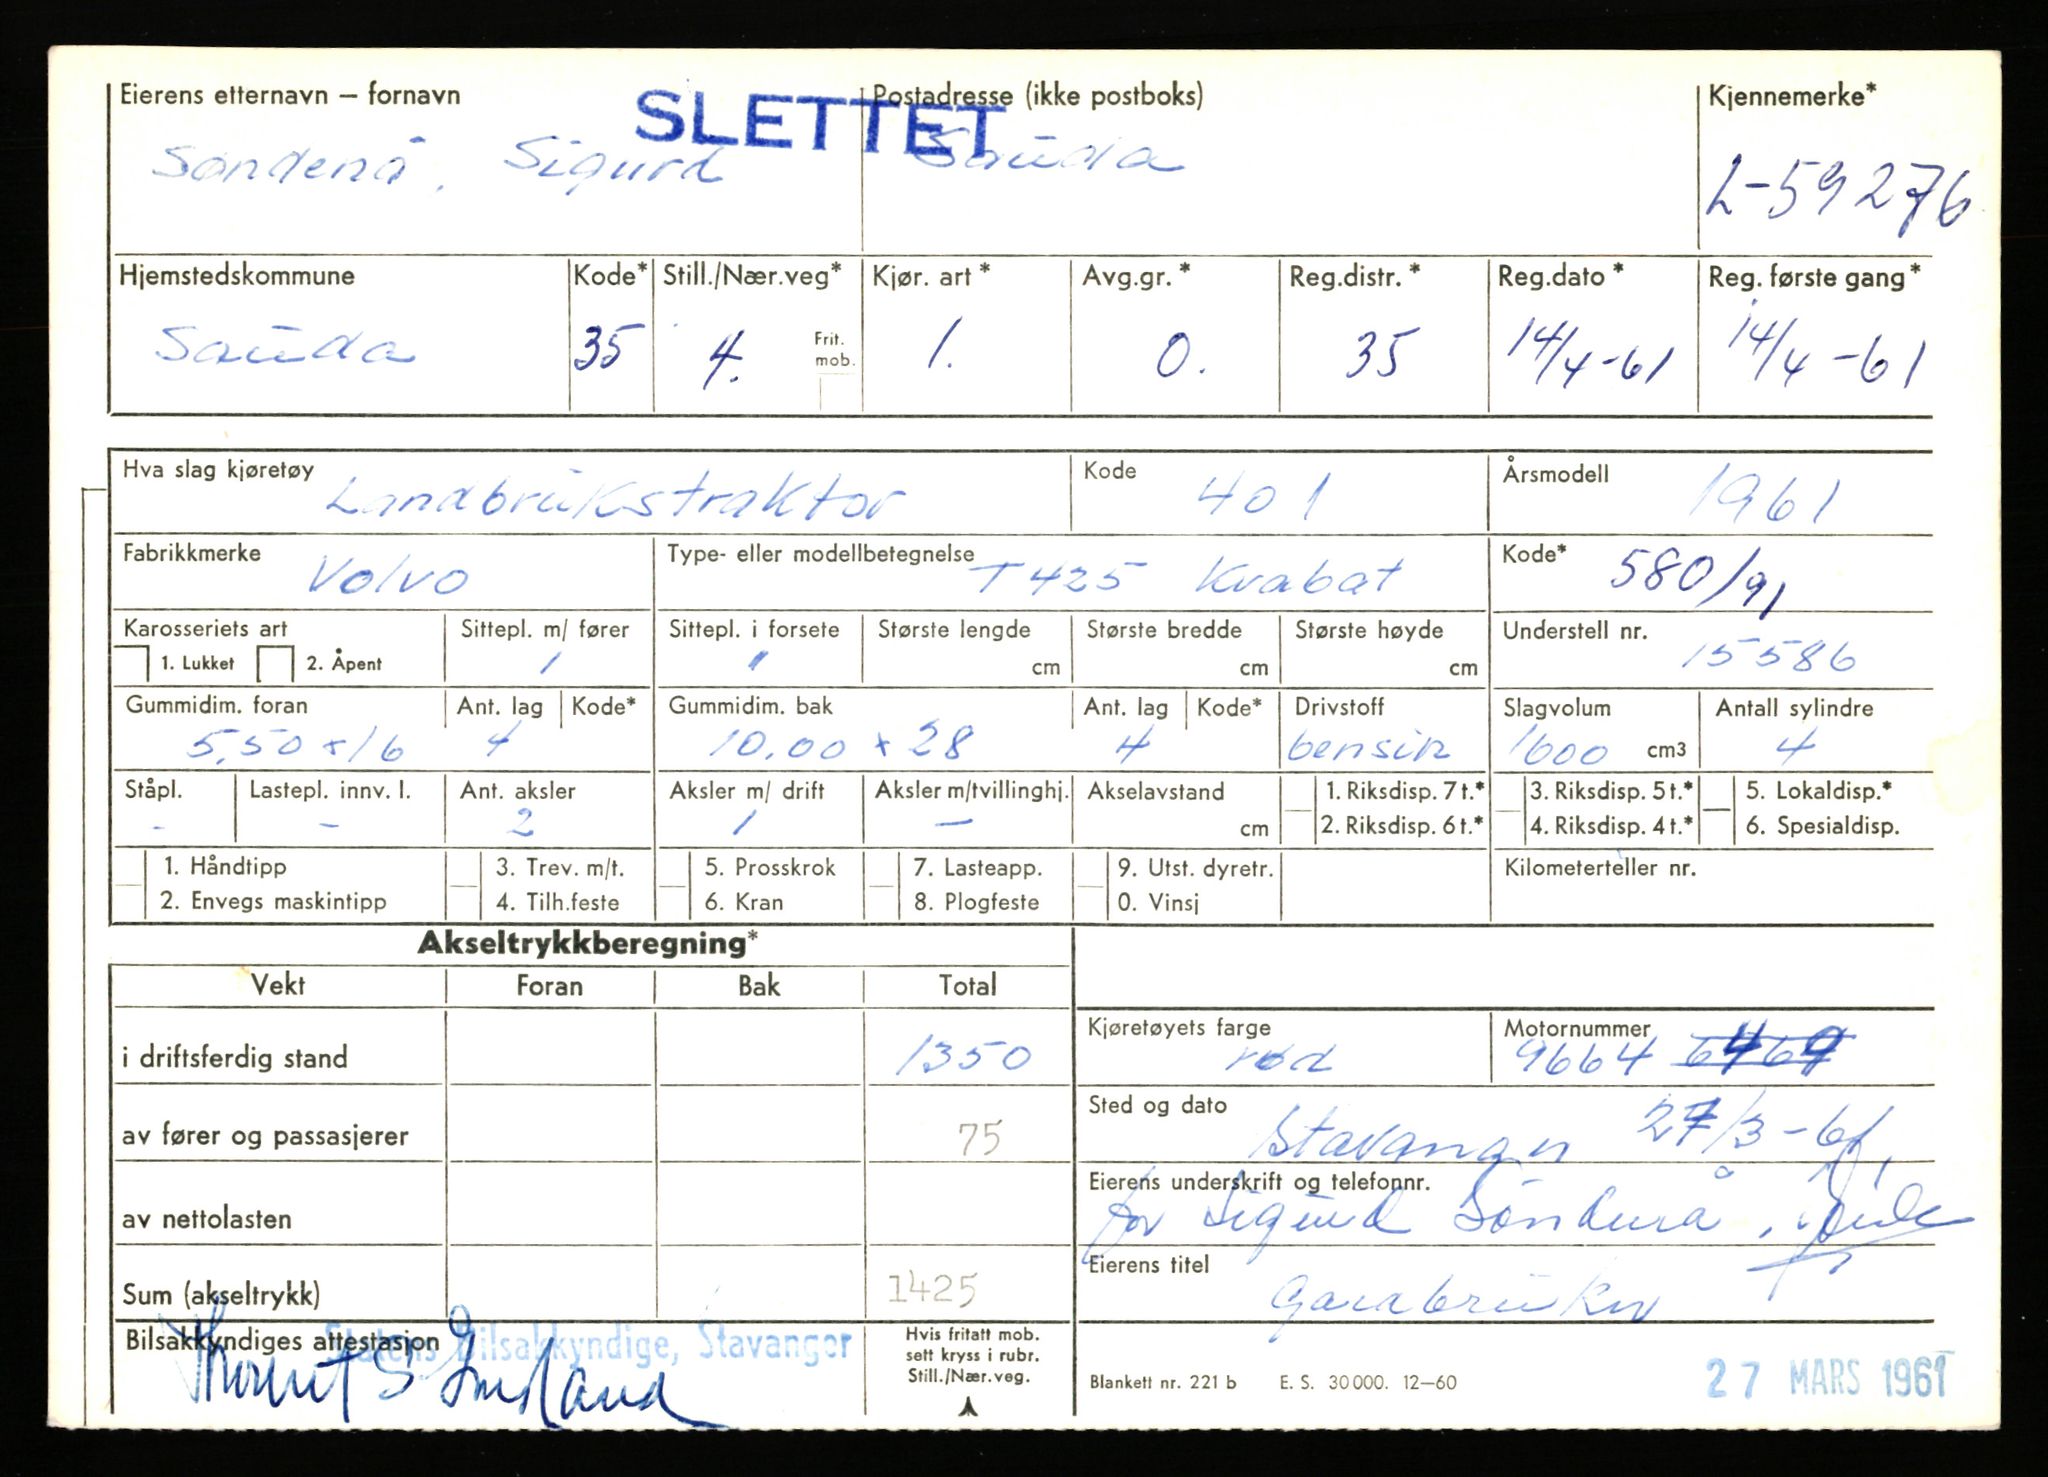 SLETTET
Eierens etternavn – fornavn Postadresse (ikke postboks) Kjennemerke*
Søndenå, Sigurd Sauda L-59276
Hjemstedskommune Kode* Still./Nær.veg* Kjør. art* Avg.gr.* Reg.distr.* Reg.dato* Reg. første gang*
Sauda 35 4. Frit. mob. 1. 0. 35 14/4-61 14/4-61
Hva slag kjøretøy Kode Årsmodell
Landbrukstraktor 401 1961
Fabrikkmerke Type- eller modellbetegnelse Kode*
Volvo T425 Krabat 580/91
Karosseriets art Sittepl. m/ fører Sittepl. i forsete Største lengde Største bredde Største høyde Understell nr.
1. Lukket 2. Åpent 1 cm cm cm 15586
Gummidim. foran Ant. lag Kode* Gummidim. bak Ant. lag Kode* Drivstoff Slagvolum Antall sylindre
5,50 x 16 4 10,00 x 28 4 bensin 1600 cm3 4
Ståpl. Lastepl. innv. l. Ant. aksler Aksler m/ drift Aksler m/tvillinghj. Akselavstand 1. Riksdisp. 7 t.* 3. Riksdisp. 5 t.* 5. Lokaldisp.*
- - 2 1 - cm 2. Riksdisp. 6 t.* 4. Riksdisp. 4 t.* 6. Spesialdisp.
1. Håndtipp 3. Trev. m/t. 5. Prosskrok 7. Lasteapp. 9. Utst. dyretr. Kilometerteller nr.
2. Envegs maskintipp 4. Tilh.feste 6. Kran 8. Plogfeste 0. Vinsj
Akseltrykkberegning*
Vekt Foran Bak Total
Kjøretøyets farge Motornummer
i driftsferdig stand 1350 rød 9664
Sted og dato
av fører og passasjerer 75 Stavanger 27/3-61
Eierens underskrift og telefonnr.
av nettolasten for Sigurd Søndenå
Eierens titel
Sum (akseltrykk) 1425 Gardbruker
Bilsakkyndiges attestasjon Statens Bilsakkyndige, Stavanger
Hvis fritatt mob.
sett kryss i rubr.
Still./Nær.veg.
Blankett nr. 221 b E. S. 30 000. 12–60 27 MARS 1961